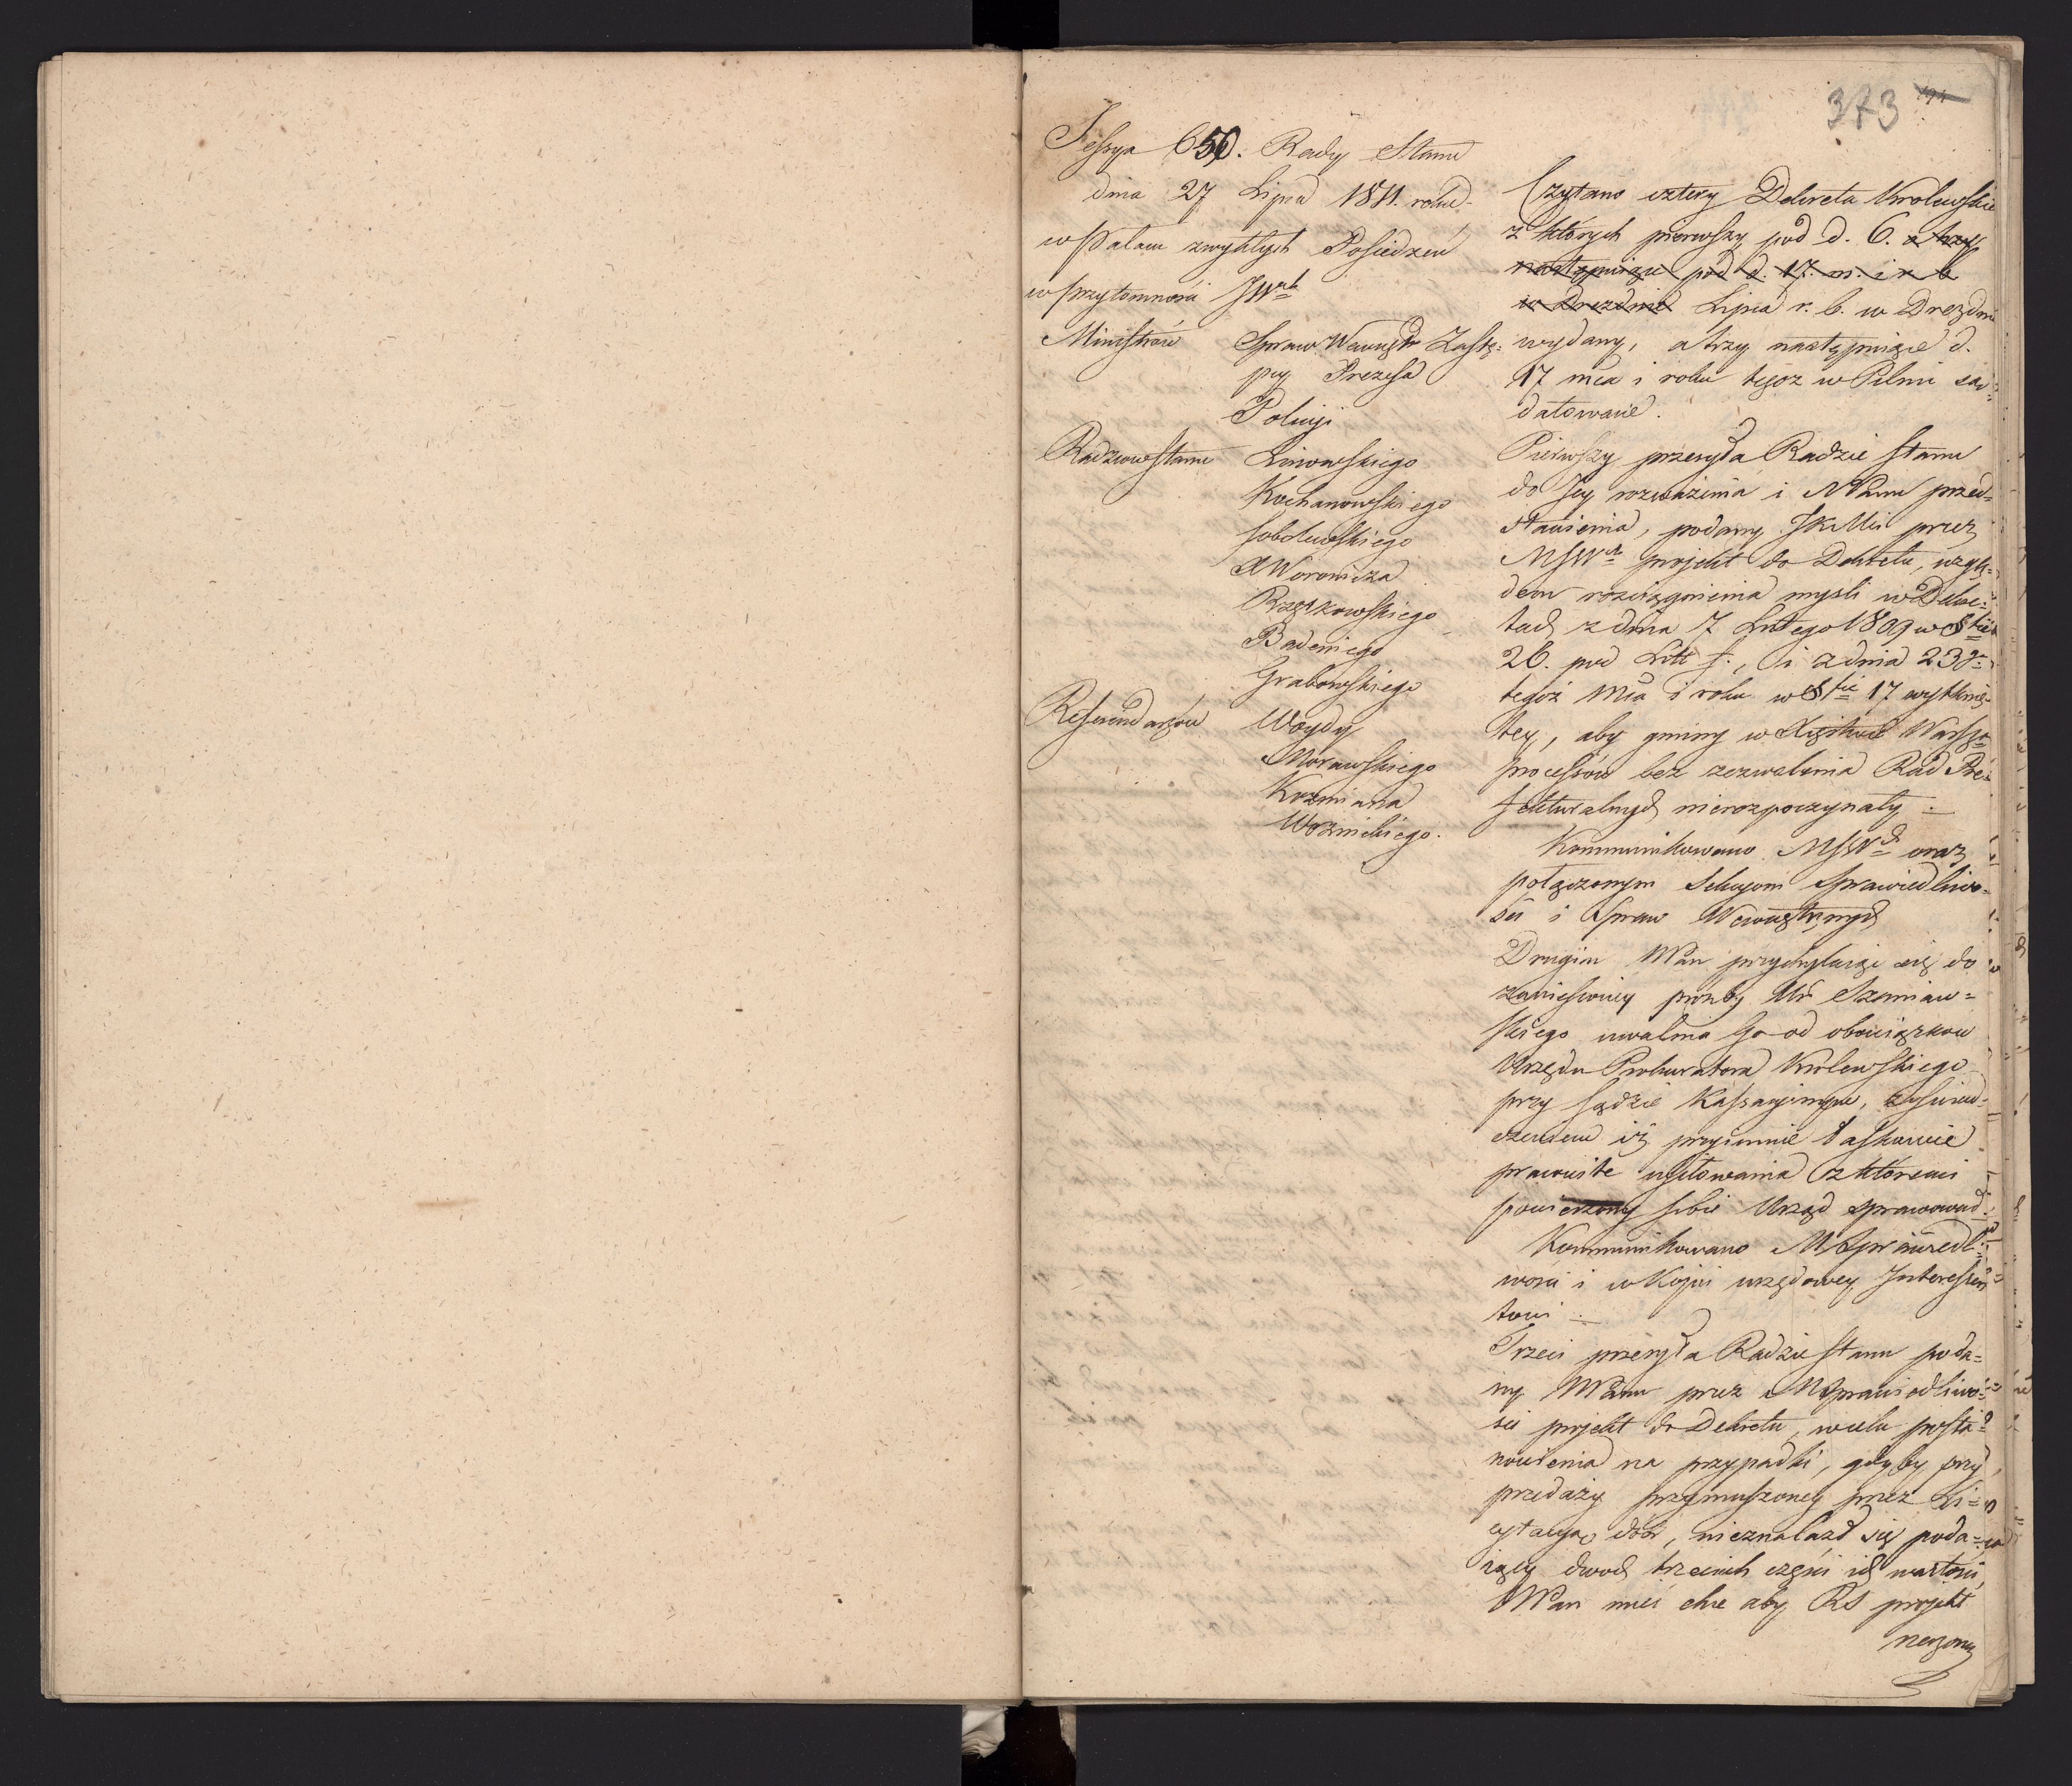 373
194
Sessya 650. Rady Stanu
dnia 27 Lipca 1811. roku
w Pałacu zwykłych Posiedzeń
w przytomności JWch
Ministrów Spraw Wewnętr Zastę=
pcy Prezesa
Policyi
Radzców Stanu Linowskiego
Kochanowskiego
Sobolewskiego
X Woronicza
Rzątkowskiego
Badeniego
Grabowskiego
Referendarzów Woydy
Morawskiego
Kozmiana
Woznickiego.
Czytano cztery Dekreta Krolewskie
z których pierwszy pod d. 6. a trzy
następuiące pod d. 17. m. i r. b.
w Dreznie Lipca r. b. w Dreznie
wydany, a trzy następuiące d.
17 mca i roku tegoz w Pilni za=
datowane.
Pierwszy przesyła Radzie Stanu
do Jey rozważenia i NPanu przed=
stawienia, podany JKMci przez
MSWch projekt do Dekretu, wzglę=
dem rozciągnienia mysli w Dekre=
tach z dnia 7 Lutego 1809 w §fie
26. pod Litt f., i z dnia 23go
tegoż Mca i roku w §fie 17 wytknię=
tey, aby gminy w Xięstwie Warszo
processów bez zezwolenia Rad Pre=
fekturalnych nierozpoczynały.
Kommunikowano MSWch oraz
połączonym Sekcyom Sprawiedliwo=
ści i Spraw Wewnętrznych
Drugim NPan przychylaiąc się do
zaniesioney proźby Ur Szaniaw=
skiego uwalnia Go od obowiązkow
Urzędu Prokuratora Królewskiego
przy Sądzie Kassacyinym, z oświad=
czeniem iż przyimuie łaskawie
prawuite usiłowania z któremi
powierzony sobie Urząd sprawował.
Kommunikowano MSprawiedl=
wości i w Kopii urzędowey Interessen=
towi.
Trzeci przesyła Radzie Stanu poda=
ny NPanu przez MSprawiedliwo=
ści projekt do Dekretu, w celu posta=
nowienia na przypadki, gdyby przy
przedaży przymuszoney przez Li=
cytacyą dóbr, nieznalazł się poda=
iący dwoch trzecich części ich wartości,
NPan mieć chce aby RS projekt
rzeczony